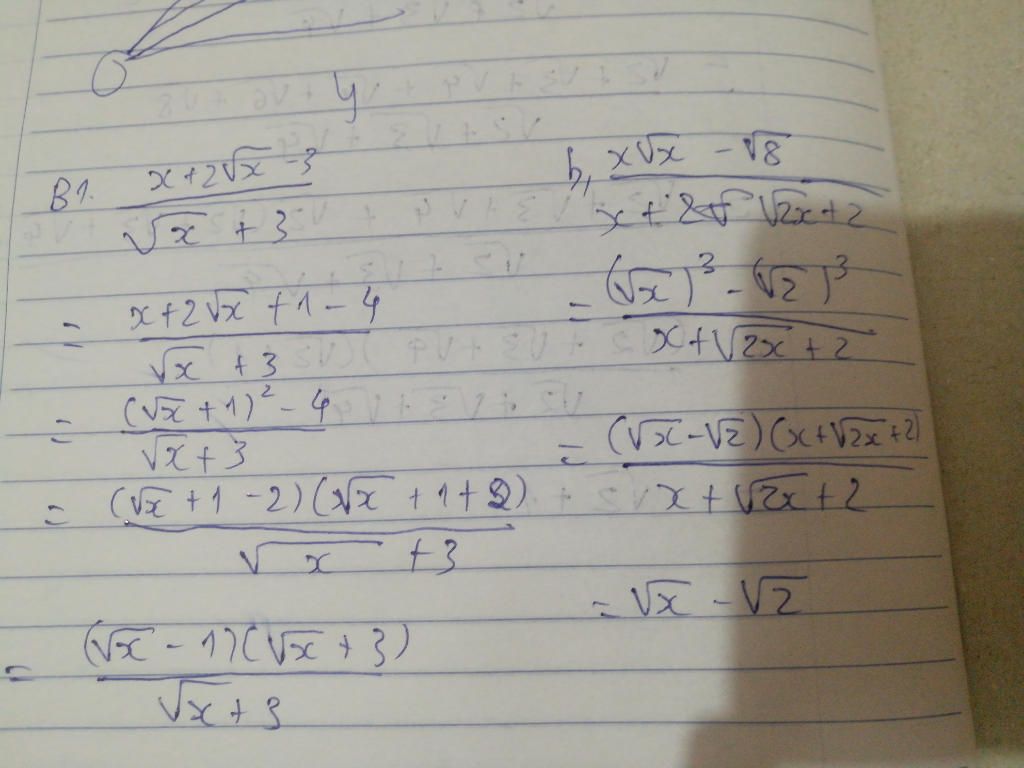 y
B1. (x+2√x -3)/(√x + 3)
= (x+2√x +1 - 4)/(√x + 3)
= ((√x +1)² - 4)/(√x+3)
= ((√x +1 -2)(√x +1+2))/(√x +3)
= ((√x - 1)(√x + 3))/(√x+3)
b, (x√x - √8)/(x + √2x+2)
= ((√x)³ - (√2)³)/(x+√2x +2)
= ((√x -√2)(x+√2x +2))/(x + √2x+2)
= √x - √2